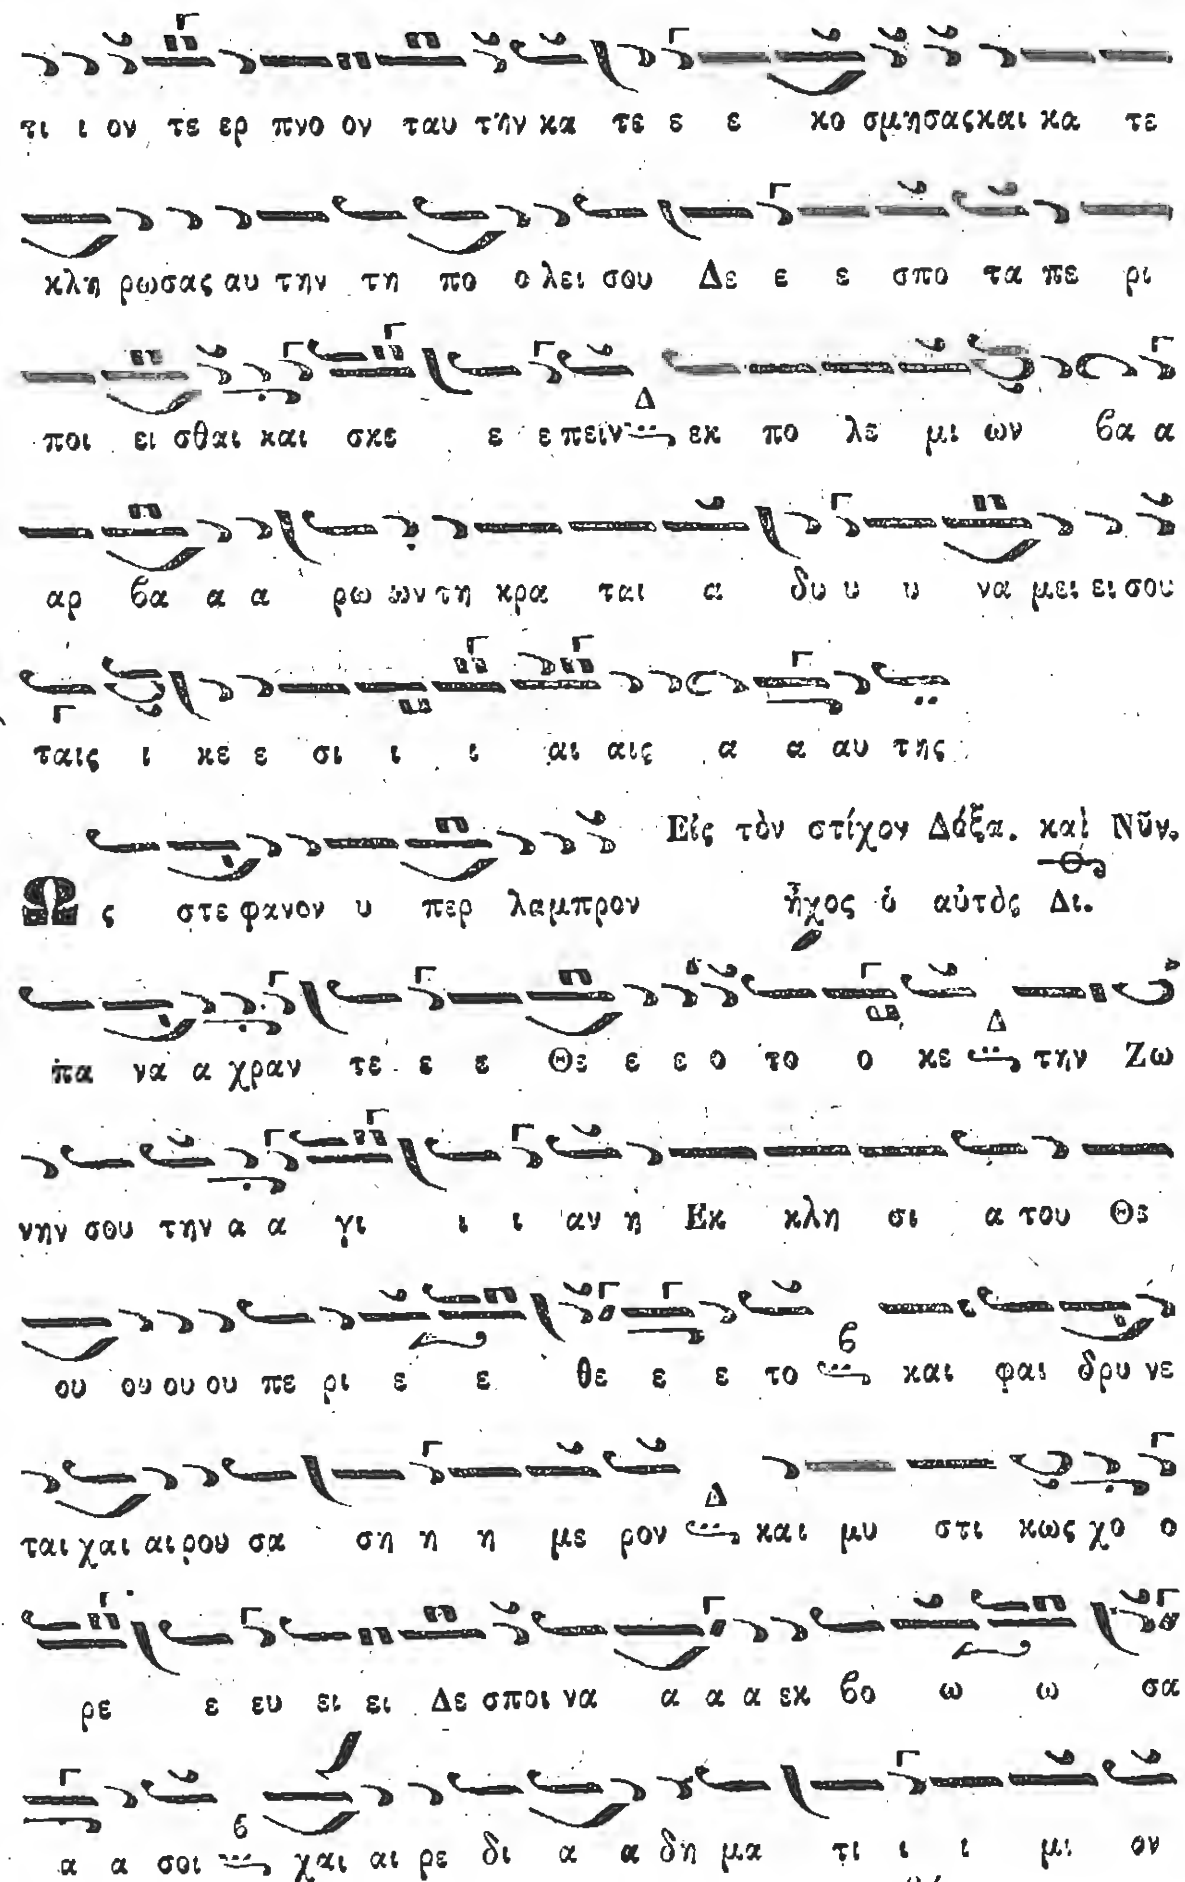 τι ι ον τε ερ πνο ον ταυ την κα τε ε ε κο σμησας και κα τε
κλη ρωσας αυ την τη πο ο λει σου Δε ε ε σπο τα πε ρι
ποι ει σθαι και σκε ε ε πειν Δ εκ πο λε μι ων βα α
αρ βα α α ρω ων τη κρα ται α δυ υ υ να μει ει σου
ταις ι κε ε σι ι ι αι αις α α αυ της
Εἰς τὸν στίχον Δόξα. καὶ Νῦν.
Ως στε φανον υ περ λαμπρον ἦχος ὁ αὐτὸς Δι.
πα να α χραν τε ε ε Θε ε ε ο το ο κε Δ την Ζω
νην σου την α α γι ι ι αν η Εκ κλη σι α του Θε
ου ου ου ου πε ρι ε ε θε ε ε το β και φαι δρυ νε
ται χαι αι ρου σα ση η η με ρον Δ και μυ στι κως χο ο
ρε ε ευ ει ει Δε σποι να α α α εκ βο ω ω σα
α α σοι β χαι αι ρε δι α α δη μα τι ι ι μι ον